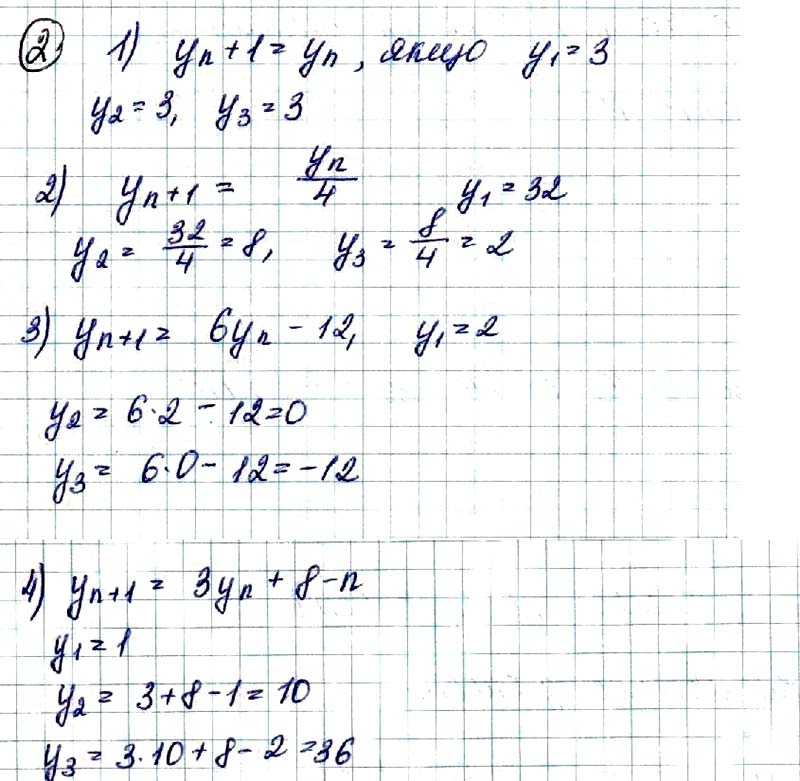 2. 1) yₙ + 1 = yₙ, якщо y₁ = 3
y₂ = 3, y₃ = 3
2) yₙ₊₁ = yₙ/4 y₁ = 32
y₂ = 32/4 = 8, y₃ = 8/4 = 2
3) yₙ₊₁ = 6yₙ - 12, y₁ = 2
y₂ = 6·2 - 12 = 0
y₃ = 6·0 - 12 = -12
4) yₙ₊₁ = 3yₙ + 8 - n
y₁ = 1
y₂ = 3 + 8 - 1 = 10
y₃ = 3·10 + 8 - 2 = 36